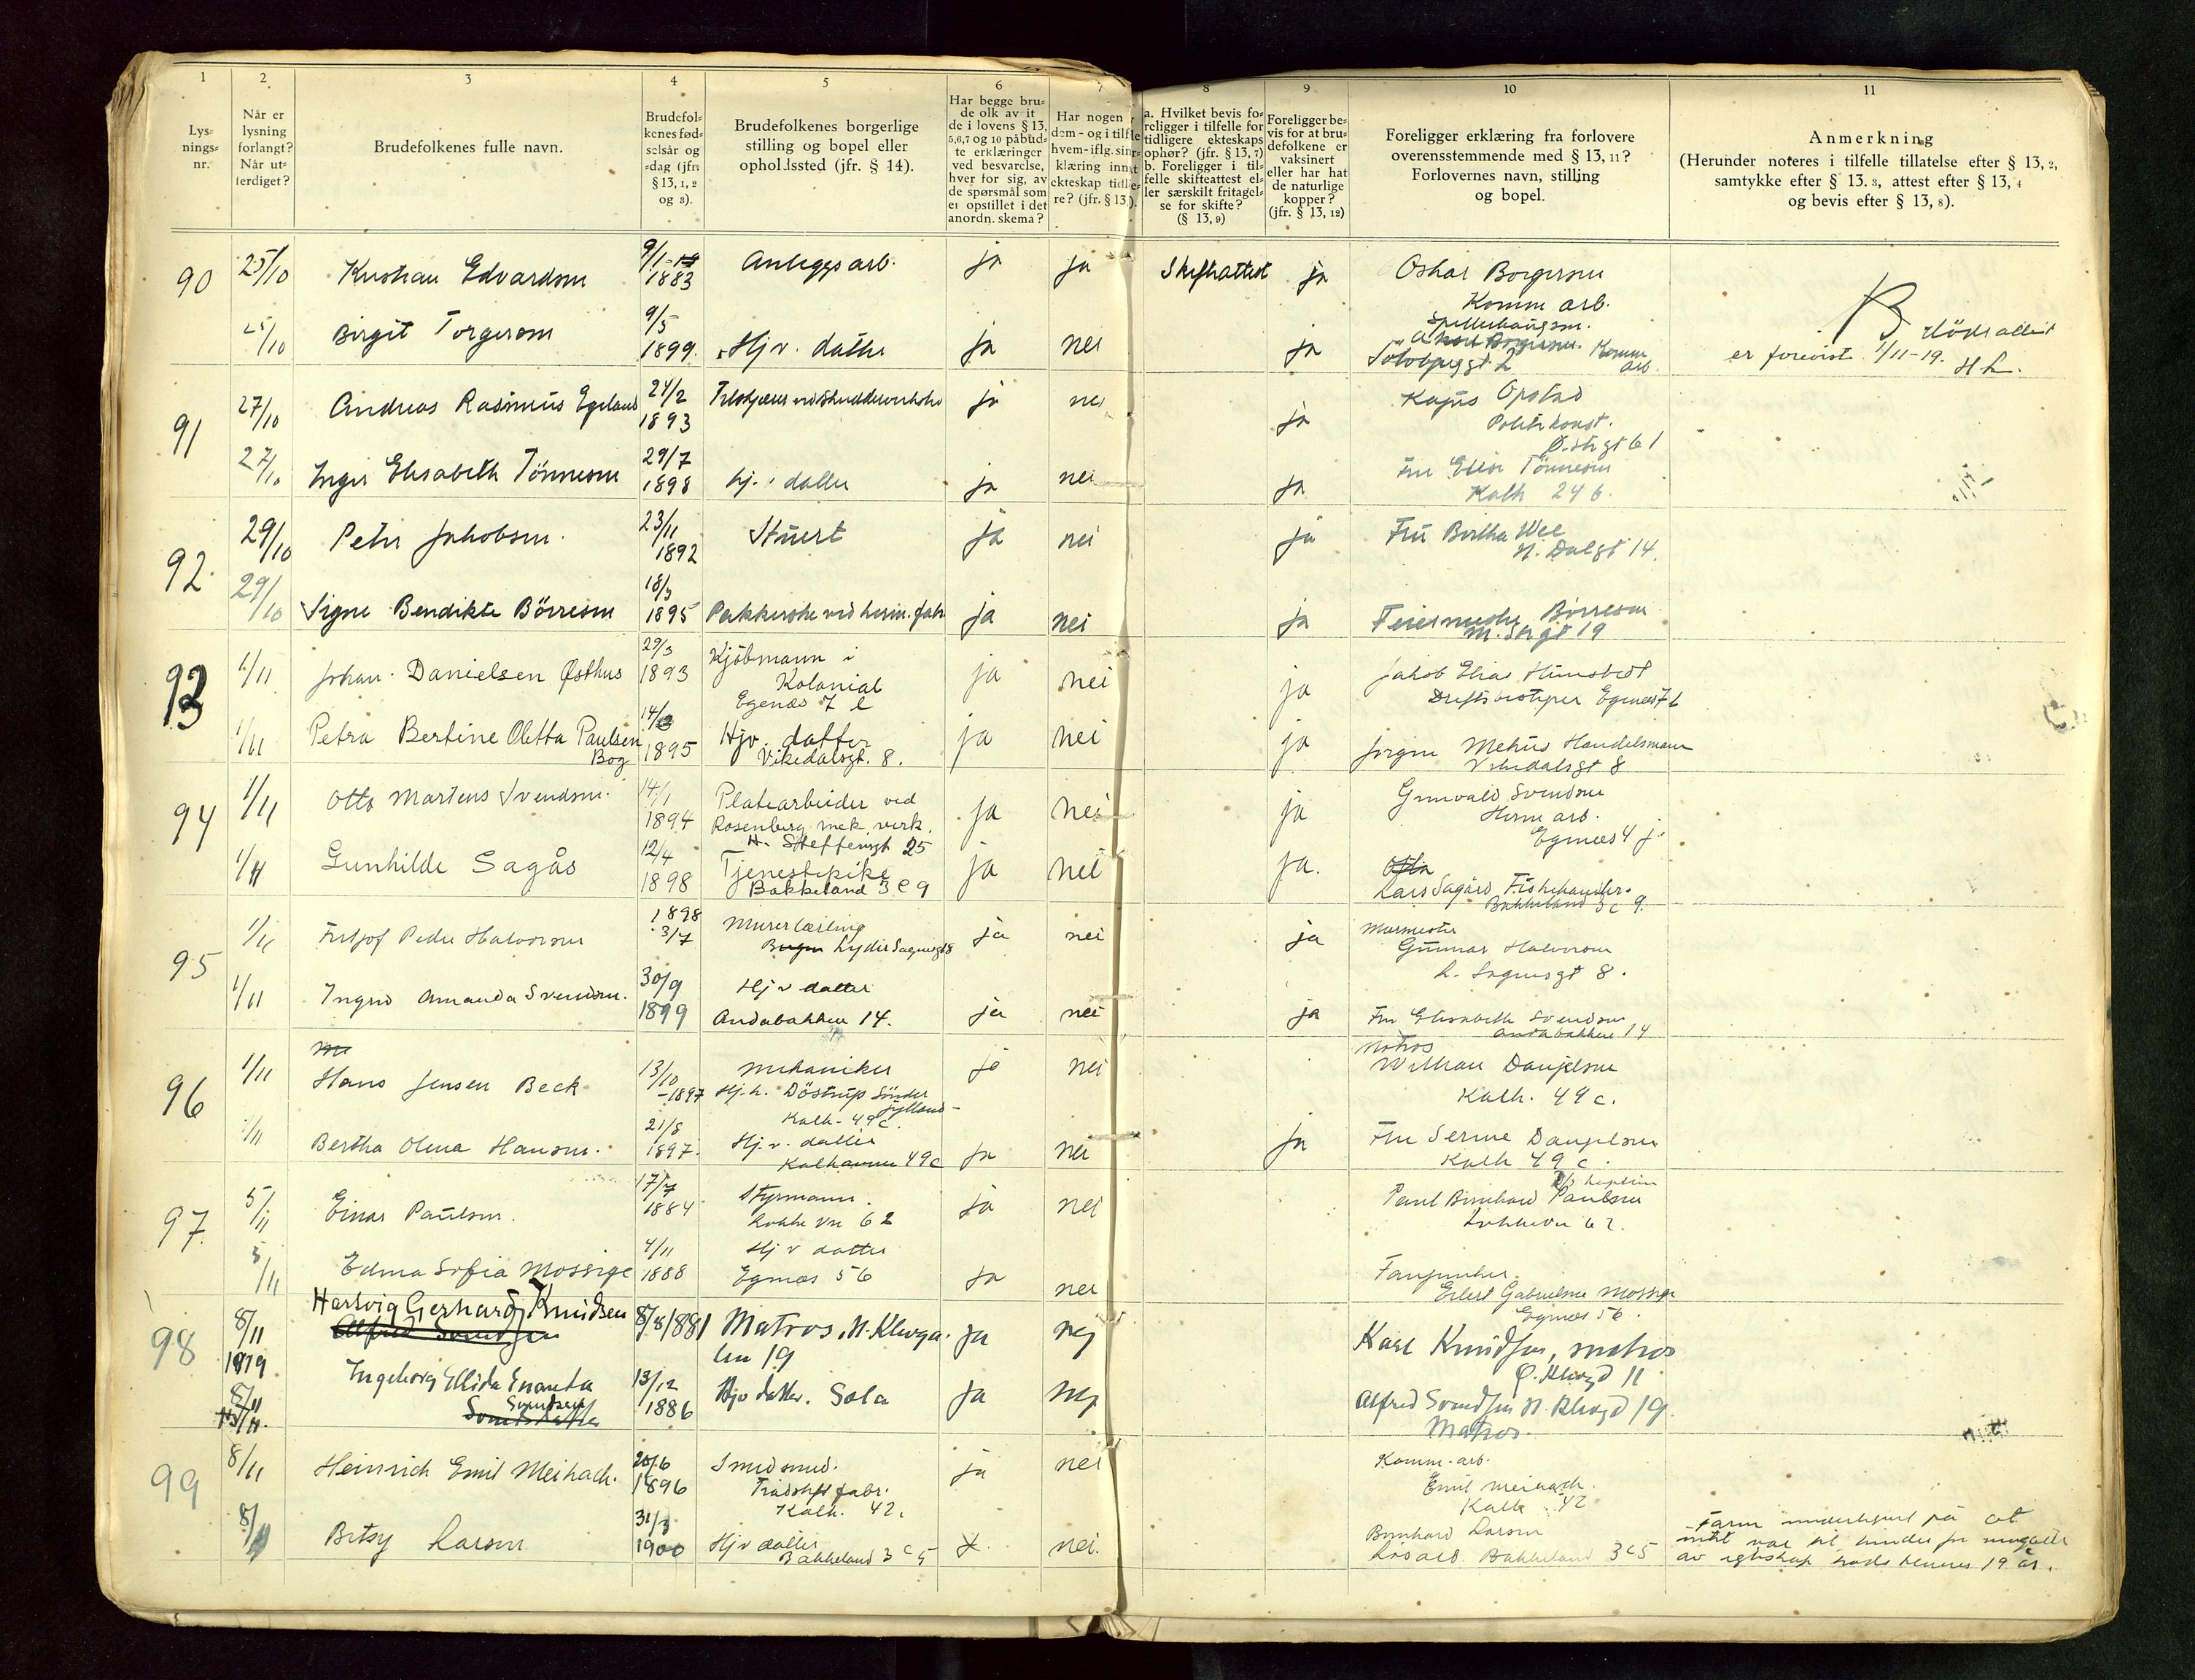 1 2 3 4 5 6 7 8 9 10 11
Lysningsnr.
Når er lysning forlangt? Når utferdiget?
Brudefolkenes fulle navn.
Brudefolkenes fødselsår og -dag (jfr. § 13, 1, 2 og 3).
Brudefolkenes borgerlige stilling og bopel eller ophol.lssted (jfr. § 14).
Har begge brudefolk avgit de i lovens § 13, 5,6,7 og 10 påbudte erklæringer ved besvarelse, hver for sig, av de spørsmål som er opstillet i det anordn. skema?
Har nogen
a. Hvilket bevis foreligger i tilfelle for tidligere ekteskaps ophør? (jfr. § 13, 7)
b. Foreligger i tilfelle skifteattest eller særskilt fritagelse for skifte? (§ 13, 9)
Foreligger bevis for at brudefolkene er vaksinert eller har hat de naturlige kopper? (jfr. § 13, 12)
Foreligger erklæring fra forlovere overensstemmende med § 13, 11? Forlovernes navn, stilling og bopel.
Anmerkning
(Herunder noteres i tilfelle tillatelse efter § 13, 2, samtykke efter § 13. 3, attest efter § 13, 4 og bevis efter § 13, 8).
90 25/10 Kristian Edvardsen 9/1 1883 Anleggsarb. ja ja Skifteattest ja Oskar Borgersen
Komm arb.
25/10 Birgit Torgersen 9/5 1899 Hj v. datter ja nei ja
Dødsattest
er forevist 1/11-19. H L.
91 27/10 Andreas Rasmus Egeland 24/2 1893 ja nei ja Kajus Opstad
Politikonst.
Ø. strgt 61
27/10 Inger Elisabeth Tönnesen 29/7 1898 hj. v datter ja nei ja Fru Elise Tönnesen
Kalh 24 b.
92 29/10 Peter Jakobsen. 23/11 1892 Stuert ja nei ja Fru Bertha Wee
N. Dalgt 14.
29/10 Signe Bendikte Börresen 18/3 1895 Pakkerske ved herm. fabr ja nei ja Feiermester Börresen
19
93 1/11 Johan. Danielsen Østhus 29/3 1893 Kjöbmann i
Kolonial
Egenæs 7 l ja nei ja Jakob Elias
Egenæs 7 l
1/11 Petra Bertine Oletta Paulsen
Bog 1895 Hjv. datter
Vikedalsgt. 8. ja nei ja Jørgen Mehus Handelsmann
Vikedalsgt 8
94 1/11 Otto Martens Svendsen. 14/1 1894 Platearbeider ved
Rosenberg mek. verk.
H. Steffensgt 25 ja nei ja Grunvald Svendsen
Herm arb.
Egenæs 4 j
1/11 Gunhilde Sagås 12/4 1898 Tjenestepike
Bakkeland 3 c 9 ja nei ja. Otto
Lars Sagård Fiskehandler.
Bakkeland 3 c 9.
95 1/11 Fritjof Peder Halvorsen 1898 3/7 Murerlærling
Lyder Sagensgt 8 ja nei ja Murmester
Gunnar Halvorsen
L. Sagensgt 8.
1/11 Ingrid Amanda Svendsen. 30/9 1899 Hj v datter
Andabakken 14. ja nei ja Fru Elisabeth Svendsen
Andabakken 14
96 1/11 Hans Jensen Beck 13/10 -1897 Mekaniker
Hj.h. Döstrup Sönder
Jylland-
Kalh. 49 c. ja nei Matros
William Danielsen
Kalh. 49 c.
1/11 Bertha Olena Hansen. 21/8 1897. Hj.v. datter
Kalhammer 49c ja nei ja Fru Serine Danielsen
Kalh 49 c.
97. 5/11 Einar Paulsen. 17/7 1884 Styrmann.
62 ja nei Paul Bernhard Paulsen
62.
5/11 Edma Sofia Mossige 4/11 1888 Hj v datter
Egenæs 56 ja nei
Gabrielsen Mossige
Egenæs 56.
98 8/11 1919 Hartvig Gerhard Knudsen
Alfred Svendsen 8/8/1881 Matros, N. Klevga
ten 19 ja nej Karl Knudsen, matros
Ø. Klevgd 11
8/11 Ingeborg Ellida Enanta
Svendsen 13/12 1886 Hjv datter. Sola ja nej Alfred Svendsen N. Klevgd 19.
Matros.
99 8/11 Heinrich Emil Meihack. 20/6 1896 Smedsvend.
Kalh. 42. ja nei Komm. arb.
Emil Meihack.
Kalh. 42
8/11 Betsy Larsen 31/3 1900 Hj v datter
Bakkeland 3 c 5 nei. Bernhard Larsen
Bakkeland 3 c 5
på at
intet var til hinder for inngåelse
av egteskap trods hennes 19 år.